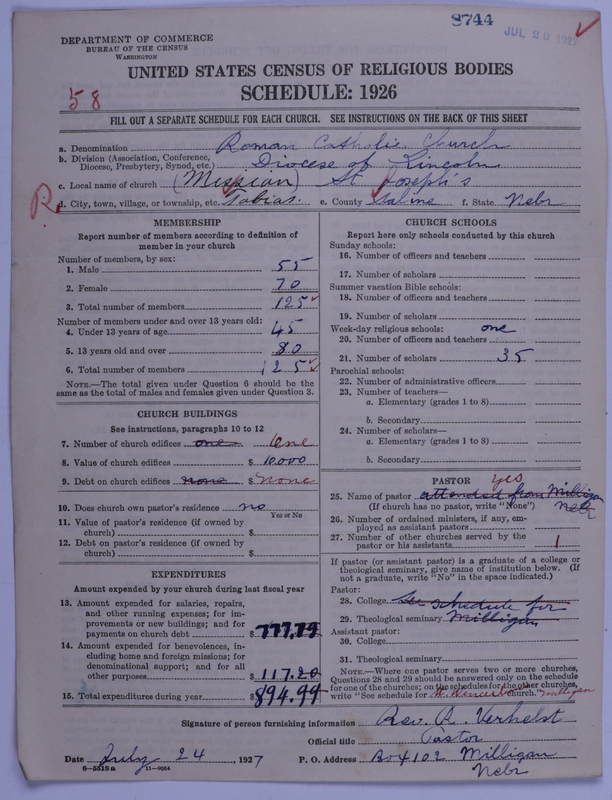 8744
JUL 26 192
DEPARTMENT OF COMMERCE
BUREAU OF THE CENSUS
WASHINGTON
UNITED STATES CENSUS OF RELIGIOUS BODIES
SCHEDULE: 1926
58
FILL OUT A SEPARATE SCHEDULE FOR EACH CHURCH. SEE INSTRUCTIONS ON THE BACK OF THIS SHEET
a. Denomination Roman Catholic Church
b. Division (Association, Conference, Diocese, Presbytery, Synod, etc.) Diocese of Lincoln
c. Local name of church (Mission) St Joseph's
R
d. City, town, village, or township, etc. Tobias. e. County Saline f. State Nebr
MEMBERSHIP
Report number of members according to definition of
member in your church
Number of members, by sex:
1. Male 55
2. Female 70
3. Total number of members 125
Number of members under and over 13 years old:
4. Under 13 years of age 45
5. 13 years old and over 80
6. Total number of members 125
NOTE.—The total given under Question 6 should be the
same as the total of males and females given under Question 3.
CHURCH BUILDINGS
See instructions, paragraphs 10 to 12
7. Number of church edifices one One
8. Value of church edifices $ 10.000
9. Debt on church edifices none $ none
10. Does church own pastor's residence no
Yes or No
11. Value of pastor's residence (if owned by
church) $
12. Debt on pastor's residence (if owned by
church) $
EXPENDITURES
Amount expended by your church during last fiscal year
13. Amount expended for salaries, repairs,
and other running expenses; for im-
provements or new buildings; and for
payments on church debt $ 777.79
14. Amount expended for benevolences, in-
cluding home and foreign missions; for
denominational support; and for all
other purposes $ 117.20
15. Total expenditures during year $ 894.99
CHURCH SCHOOLS
Report here only schools conducted by this church
Sunday schools:
16. Number of officers and teachers
17. Number of scholars
Summer vacation Bible schools:
18. Number of officers and teachers
19. Number of scholars
Week-day religious schools: one
20. Number of officers and teachers
21. Number of scholars 35
Parochial schools:
22. Number of administrative officers
23. Number of teachers—
a. Elementary (grades 1 to 8)
b. Secondary
24. Number of scholars—
a. Elementary (grades 1 to 8)
b. Secondary
PASTOR yes
25. Name of pastor attended from Milligan
(If church has no pastor, write "None") Nebr
26. Number of ordained ministers, if any, em-
ployed as assistant pastors
27. Number of other churches served by the
pastor or his assistants 1
If pastor (or assistant pastor) is a graduate of a college or
theological seminary, give name of institution below. (If
not a graduate, write "No" in the space indicated.)
Pastor:
28. College See schedule for
29. Theological seminary Milligan
Assistant pastor:
30. College
31. Theological seminary
NOTE.—Where one pastor serves two or more churches,
Questions 28 and 29 should be answered only on the schedule
for one of the churches; on the schedules for the other churches,
write "See schedule for church." Milligan
Signature of person furnishing information Rev. A. Verhelst
Official title Pastor
Date July 24 1927 P. O. Address Box 102 Milligan
Nebr
8—5518a 11—9034